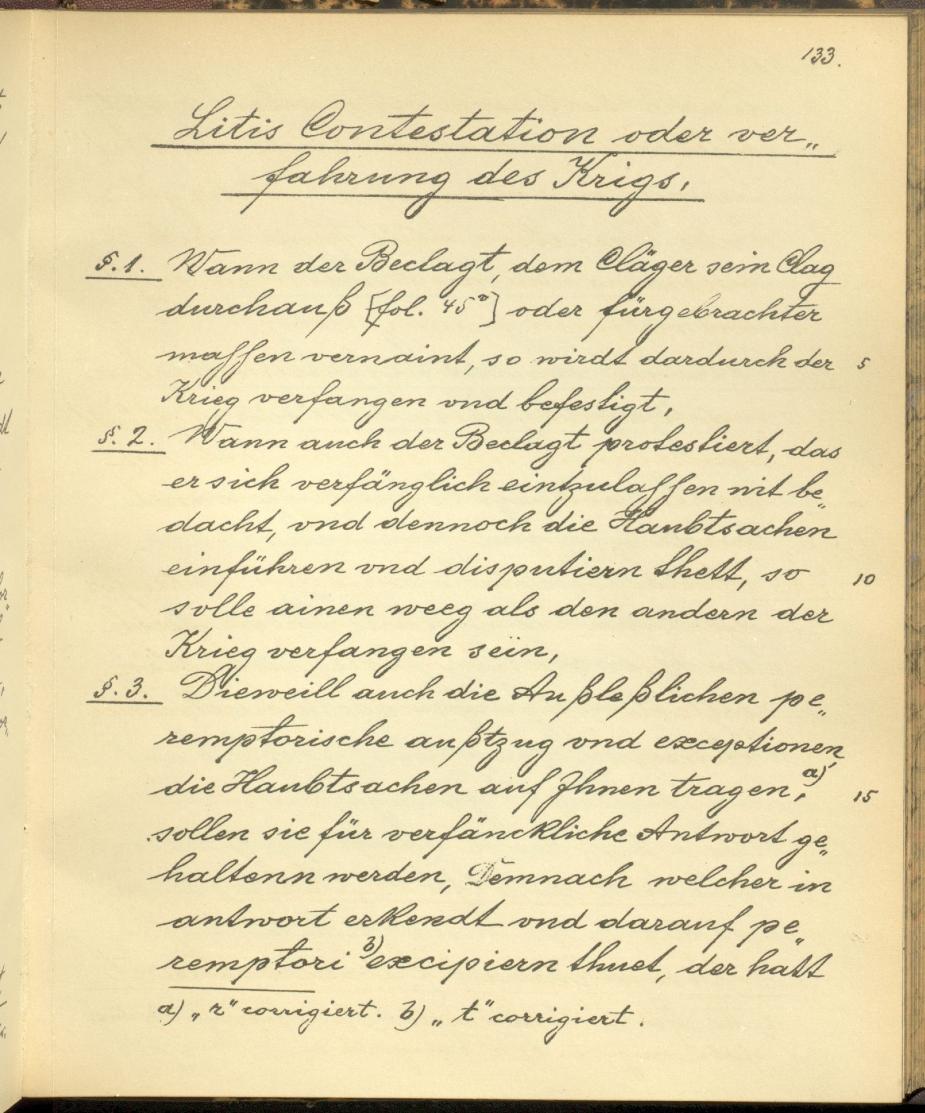 133.
Litis Contestation oder ver„
fahrung des Krigs,
§. 1. Wann der Beclagt, dem Cläger sein Clag
durchauß [fol. 45ᵃ] oder fürgebrachter
massen vernaint, so wirdt dardurch der 5
Krieg verfangen vnd befestigt,
§. 2. Wann auch der Beclagt protestiert, das
er sich verfänglich eintzulassen nit be„
dacht, vnd dennoch die Haubtsachen
einführen vnd disputiern thett, so 10
solle ainen weeg als den andern der
Krieg verfangen sein,
§. 3. Dieweill auch die Außleßlichen pe„
remptorische außtzug vnd exceptionen,
die Haubtsachen auf Ihnen tragen, a) 15
sollen sie für verfänckliche Antwort ge„
haltenn werden, Demnach welcher in
antwort erkendt vnd darauf pe„
remptori b) excipiern thuet, der hatt
a) „r“ corrigiert. b) „t“ corrigiert.